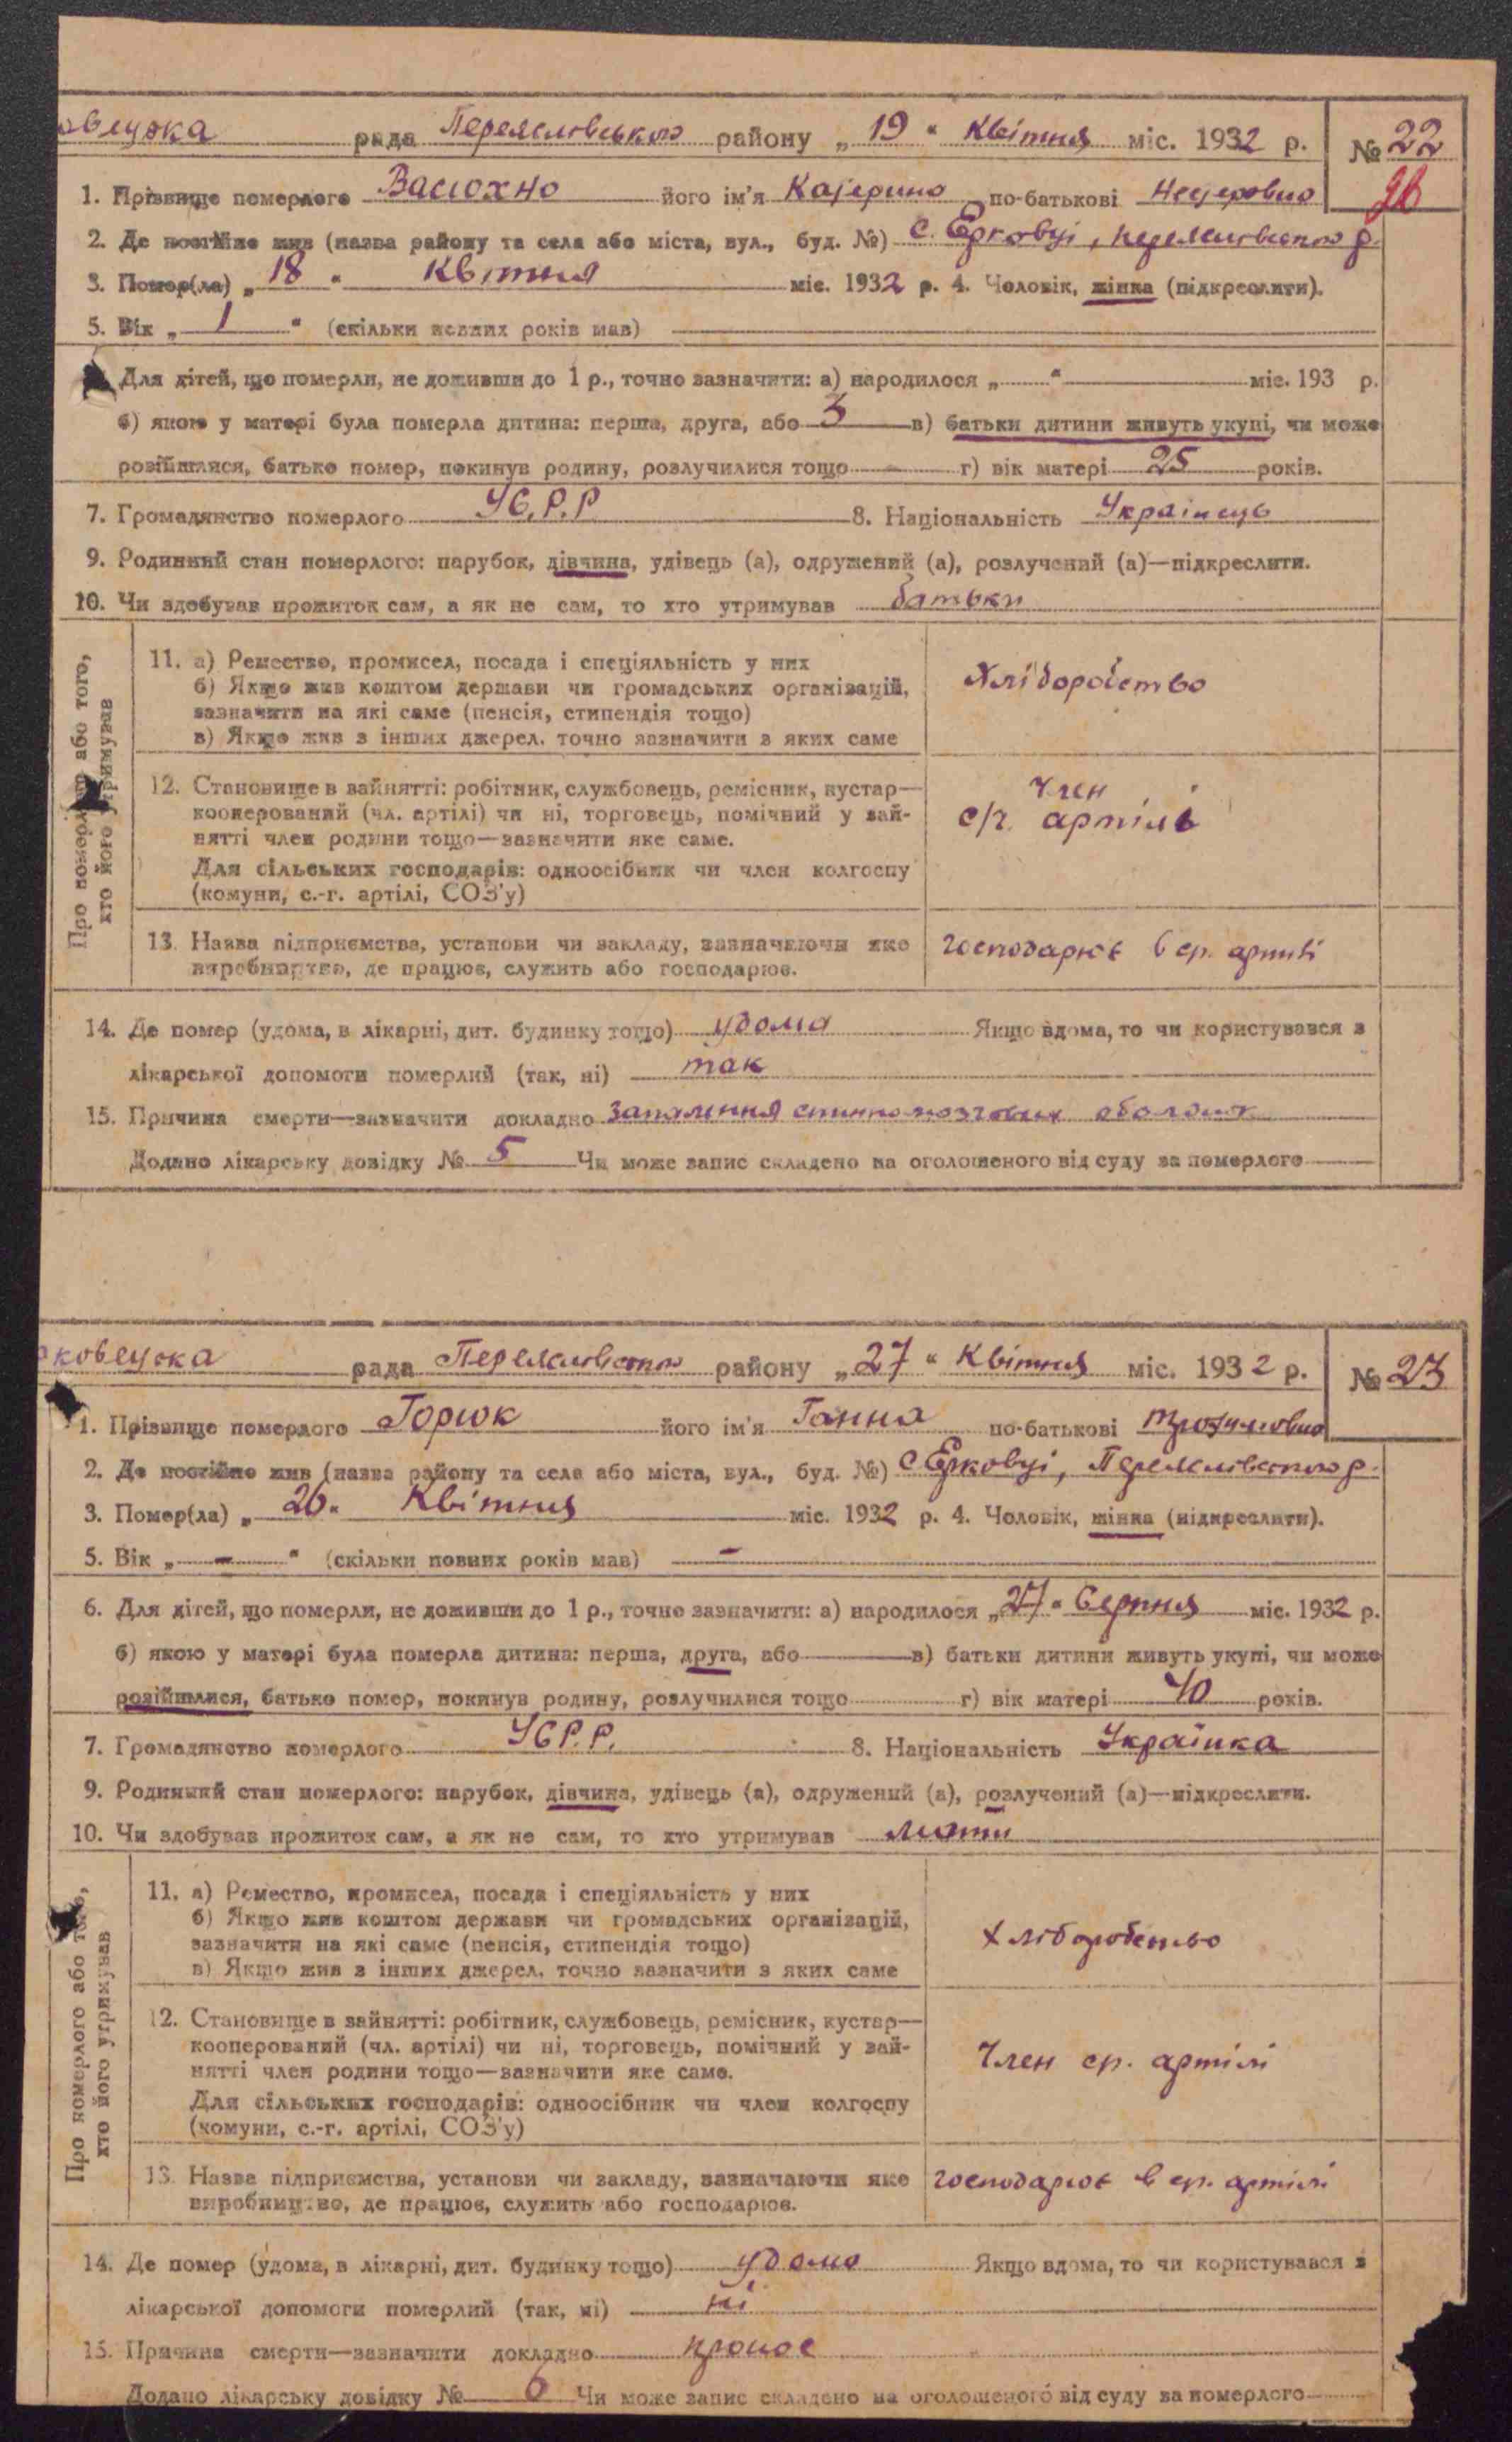 овецька рада Переяславського району „19“ Квітня міс. 1932 р. № 22
1. Прізвище померлого Васюхно його ім'я Катерина по-батькові
2. Де постійно жив (назва району та села або міста, вул., буд. №) с. Єрковці, Переяславського р.
3. Помер(ла) „18“ Квітня міс. 1932 р. 4. Чоловік, жінка (підкреслити).
5. Вік „1“ (скільки повних років мав)
Для дітей, що померли, не доживши до 1 р., точно зазначити: а) народилося „ “ міс. 193 р.
б) якою у матері була померла дитина: перша, друга, або 3 в) батьки дитини живуть укупі, чи може
розійшлися, батько помер, покинув родину, розлучилися тощо - г) вік матері 25 років.
7. Громадянство померлого УС.Р.Р 8. Національність Українець
9. Родинний стан померлого: парубок, дівчина, удівець (а), одружений (а), розлучений (а)—підкреслити.
10. Чи здобував прожиток сам, а як не сам, то хто утримував батьки
Про померлого або того, хто його утримував
11. а) Ремество, промисел, посада і спеціяльність у них
б) Якщо жив коштом держави чи громадських організацій,
зазначити на які саме (пенсія, стипендія тощо)
в) Якщо жив з інших джерел, точно зазначити з яких саме
Хліборобство
12. Становище в зайнятті: робітник, службовець, ремісник, кустар—
кооперований (чл. артілі) чи ні, торговець, помічний у зай-
нятті член родини тощо—зазначити яке саме.
Для сільських господарів: одноосібник чи член колгоспу
(комуни, с.-г. артілі, СОЗ'у)
Член
с/г. артілі
13. Назва підприємства, установи чи закладу, зазначаючи яке
виробництво, де працює, служить або господарює.
господарює в ср. артілі
14. Де помер (удома, в лікарні, дит. будинку тощо) удома Якщо вдома, то чи користувався з
лікарської допомоги померлий (так, ні) так
15. Причина смерти—зазначити докладно Запалення спинномозгових оболонк
Додано лікарську довідку № 5 Чи може запис складено на оголошеного від суду за померлого
рковецька рада Переяславського району „27“ Квітня міс. 1932 р. № 23
1. Прізвище померлого Горюк його ім'я Ганна по-батькові
2. Де постійно жив (назва району та села або міста, вул., буд. №) с Єрковці, Переяславського р.
3. Помер(ла) „26“ Квітня міс. 1932 р. 4. Чоловік, жінка (підкреслити).
5. Вік „-“ (скільки повних років мав) -
6. Для дітей, що померли, не доживши до 1 р., точно зазначити: а) народилося „27“ Серпня міс. 1932 р.
б) якою у матері була померла дитина: перша, друга, або в) батьки дитини живуть укупі, чи може
розійшлися, батько помер, покинув родину, розлучилися тощо г) вік матері 40 років.
7. Громадянство померлого УСР.Р. 8. Національність Українка
9. Родинний стан померлого: парубок, дівчина, удівець (а), одружений (а), розлучений (а)—підкреслити.
10. Чи здобував прожиток сам, а як не сам, то хто утримував мати
Про померлого або того, хто його утримував
11. а) Ремество, промисел, посада і спеціяльність у них
б) Якщо жив коштом держави чи громадських організацій,
зазначити на які саме (пенсія, стипендія тощо)
в) Якщо жив з інших джерел, точно зазначити з яких саме
Хліборобство
12. Становище в зайнятті: робітник, службовець, ремісник, кустар—
кооперований (чл. артілі) чи ні, торговець, помічний у зай-
нятті член родини тощо—зазначити яке саме.
Для сільських господарів: одноосібник чи член колгоспу
(комуни, с.-г. артілі, СОЗ'у)
Член ср. артілі
13. Назва підприємства, установи чи закладу, зазначаючи яке
виробництво, де працює, служить або господарює.
господарює в ср. артілі
14. Де помер (удома, в лікарні, дит. будинку тощо) удома Якщо вдома, то чи користувався з
лікарської допомоги померлий (так, ні) ні
15. Причина смерти—зазначити докладно
Додано лікарську довідку № 6 Чи може запис складено на оголошеного від суду за померлого